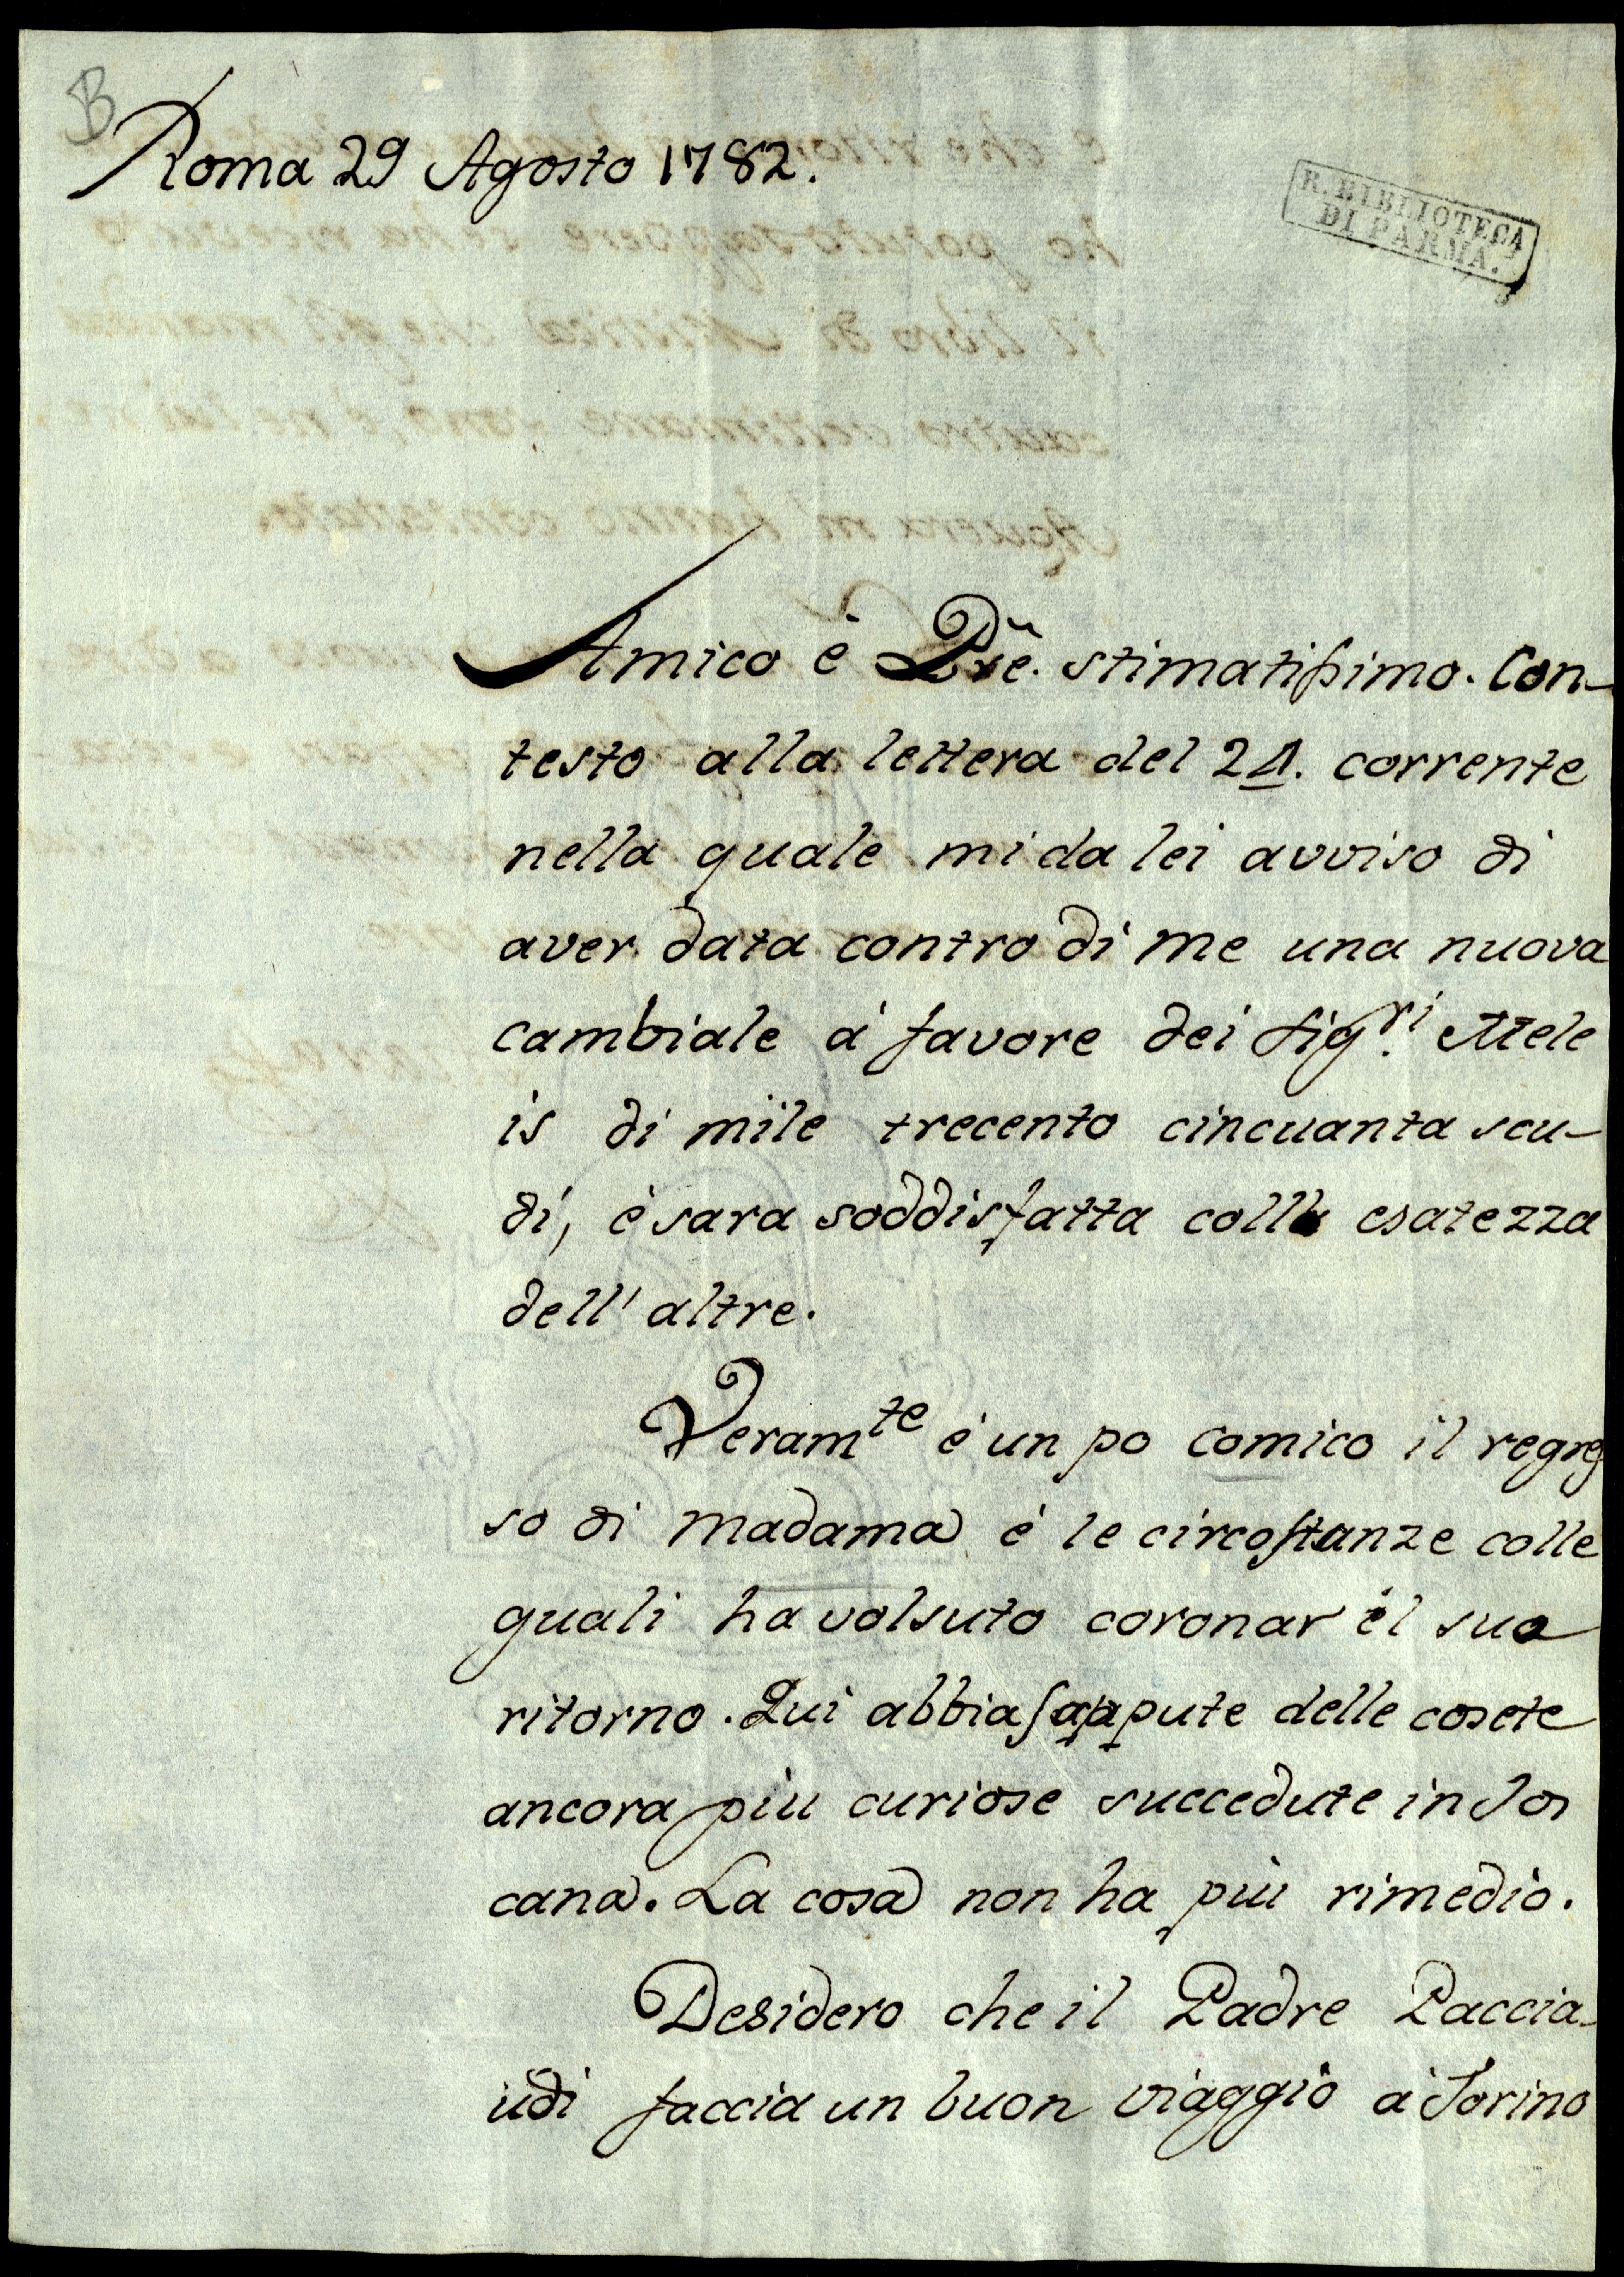 B
Roma 29 Agosto 1782.
R. BIBLIOTECA
DI PARMA.
Amico è Prẽ. stimatissimo. Con-
testo alla lettera del 24. corrente
nella quale mi da lei avviso di
aver data contro di me una nuova
cambiale à favore dei Sig.ri Mele
is di mile trecento cincuanta scu-
di, è sara soddisfatta colla esatezza
dell' altre.
Veramte è un po comico il regres
so di madama è le circostanze colle
quali ha volsuto coronar il suo
ritorno. Qui abbia sappute delle cosete
ancora più curiose succedute in Tos
cana. La cosa non ha più rimedio.
Desidero che il Padre Paccia-
udi faccia un buon viaggio à Torino